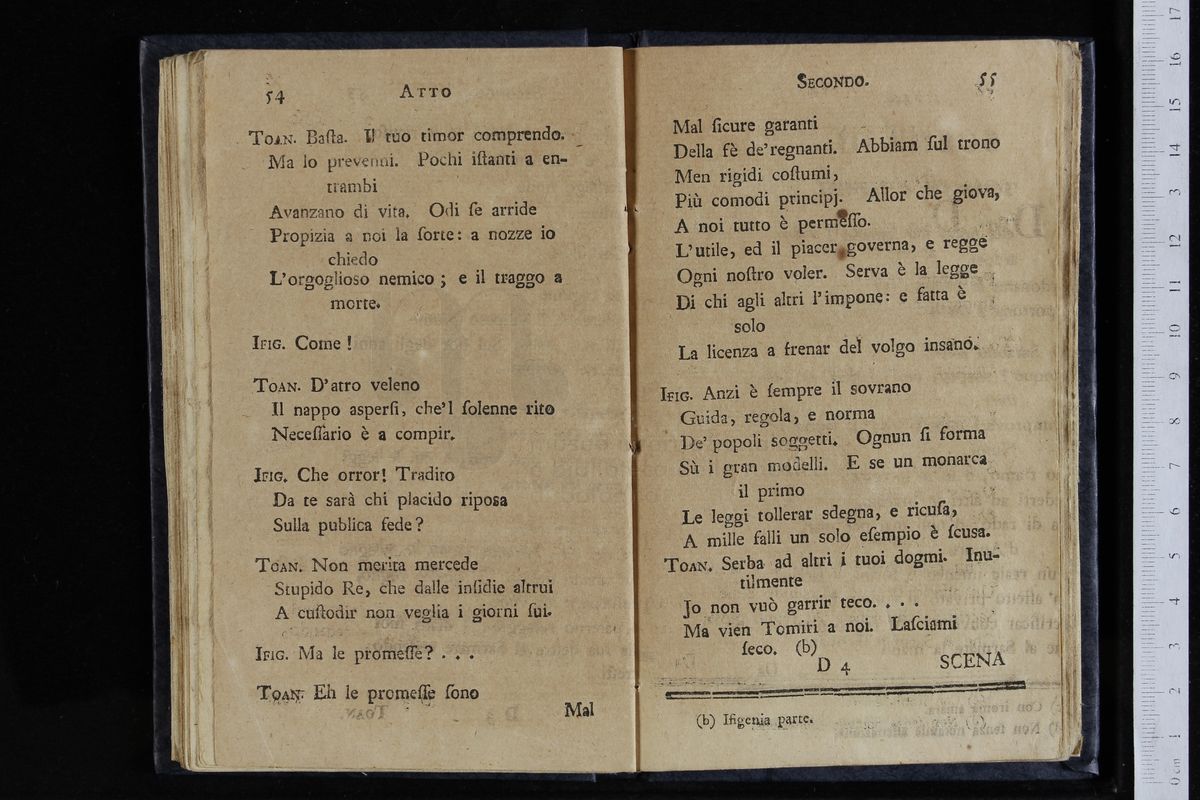 54 ATTO
TOAN. Baſta. Il tuo timor comprendo.
Ma lo prevenni. Pochi iſtanti a en-
trambi
Avanzano di vita. Odi ſe arride
Propizia a noi la ſorte: a nozze io
chiedo
L'orgoglioso nemico ; e il traggo a
morte.
IFIG. Come !
TOAN. D'atro veleno
Il nappo asperſi, che'l ſolenne rito
Neceſſario è a compir.
IFIG. Che orror! Tradito
Da te sarà chi placido riposa
Sulla publica fede?
TOAN. Non merita mercede
Stupido Re, che dalle inſidie altrui
A cuſtodir non veglia i giorni ſui.
IFIG. Ma le promeſſe? . . .
TOAN. Eh le promeſſe ſono
Mal
SECONDO. 55
Mal ſicure garanti
Della fè de'regnanti. Abbiam ſul trono
Men rigidi coſtumi,
Più comodi principj. Allor che giova,
A noi tutto è permeſſo.
L'utile, ed il piacer governa, e regge
Ogni noſtro voler. Serva è la legge
Di chi agli altri l'impone: e fatta è
solo
La licenza a frenar del volgo insano.
IFIG. Anzi è ſempre il sovrano
Guida, regola, e norma
De' popoli soggetti. Ognun ſi forma
Sù i gran modelli. E se un monarca
il primo
Le leggi tollerar sdegna, e ricuſa,
A mille falli un solo eſempio è ſcusa.
TOAN. Serba ad altri i tuoi dogmi. Inu-
tilmente
Jo non vuò garrir teco. . . .
Ma vien Tomiri a noi. Laſciami
ſeco. (b)
D 4 SCENA
(b) Ifigenia parte.